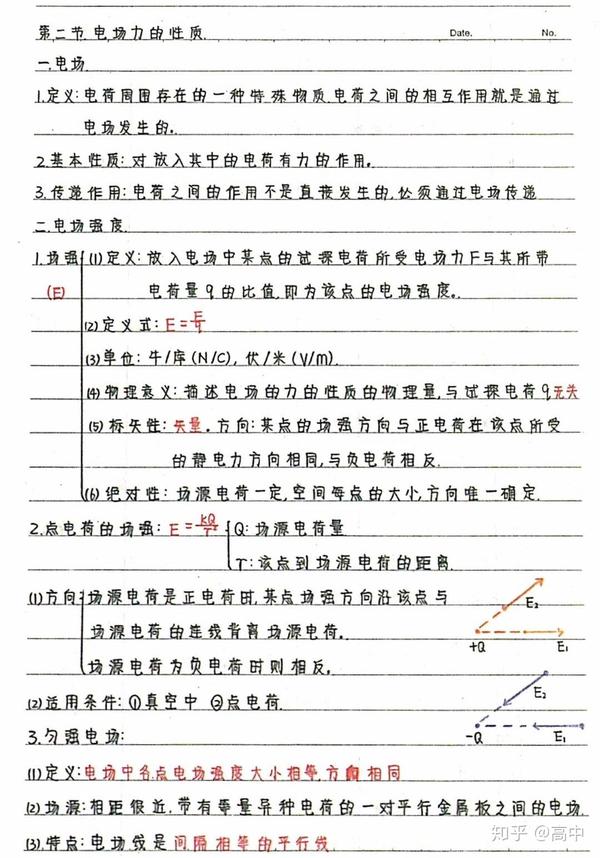 第二节 电场力的性质. Date. No.
一.电场
1.定义:电荷周围存在的一种特殊物质.电荷之间的相互作用就是通过
电场发生的。
2.基本性质:对放入其中的电荷有力的作用。
3.传递作用:电荷之间的作用不是直接发生的,必须通过电场传递
二.电场强度.
1.场强 (1)定义:放入电场中某点的试探电荷所受电场力F与其所带
(E) 电荷量q的比值,即为该点的电场强度。
(2)定义式:E=F/q
(3)单位:牛/库(N/C),伏/米(V/m).
(4)物理意义:描述电场的力的性质的物理量,与试探电荷q无关
(5)标矢性:矢量。方向:某点的场强方向与正电荷在该点所受
的静电力方向相同,与负电荷相反.
(6)绝对性:场源电荷一定,空间每点的大小,方向唯一确定.
2.点电荷的场强:E=kQ/r² Q:场源电荷量
r:该点到场源电荷的距离.
(1)方向 场源电荷是正电荷时,某点场强方向沿该点与
场源电荷的连线背离场源电荷。
场源电荷为负电荷时则相反。
E₂
+Q E₁
(2)适用条件:①真空中 ②点电荷.
E₂
-Q E₁
3.匀强电场:
(1)定义:电场中各点电场强度大小相等,方向相同
(2)场源:相距很近,带有等量异种电荷的一对平行金属板之间的电场.
(3)特点:电场线是间隔相等的平行线.
知乎 @高中